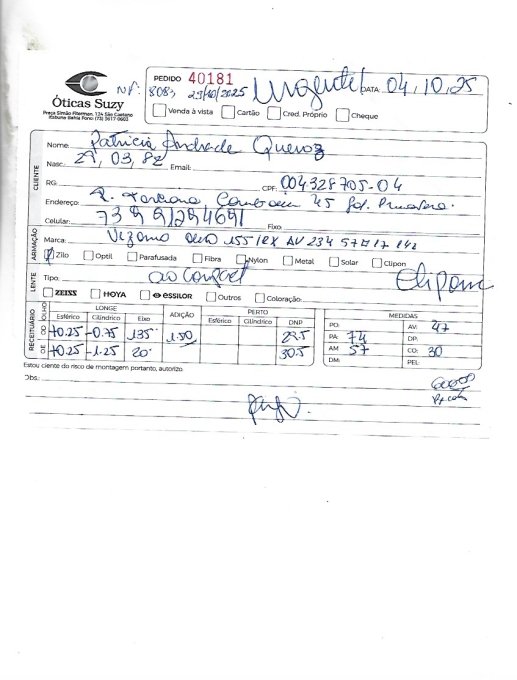 Óticas Suzy
Praça Simão Fiterman, 124 São Caetano
Itabuna Bahia Fone: (73) 3617-0663
NF: 8083 29/10/2025
PEDIDO 40181 Urgente DATA 04,10,25
Venda à vista Cartão Cred. Próprio Cheque
CLIENTE
Nome: Patricia Andrade Queiroz
Nasc. 27, 03, 82 Email:
RG: CPF: 004328705-04
Endereço: R. 45 Jd. Primavera.
Celular: 73 991294691 Fixo
ARMAÇÃO
Marca: Vizamo
Zilo Optil Parafusada Fibra Nylon Metal Solar Clipon
LENTE
Tipo: Clipon
ZEISS HOYA essilor Outros Coloração:
RECEITUÁRIO
OLHO LONGE ADIÇÃO PERTO DNP MEDIDAS
Esférico Cilíndrico Eixo Esférico Cilíndrico
OD +0.25 -0.75 135° 1.50 29.5
OE +0.25 -1.25 20° 30.5
PO: AV: 47
PA: 74 DP:
AM: 57 CO: 30
DM: PEL:
Estou ciente do risco de montagem portanto, autorizo.
Obs: